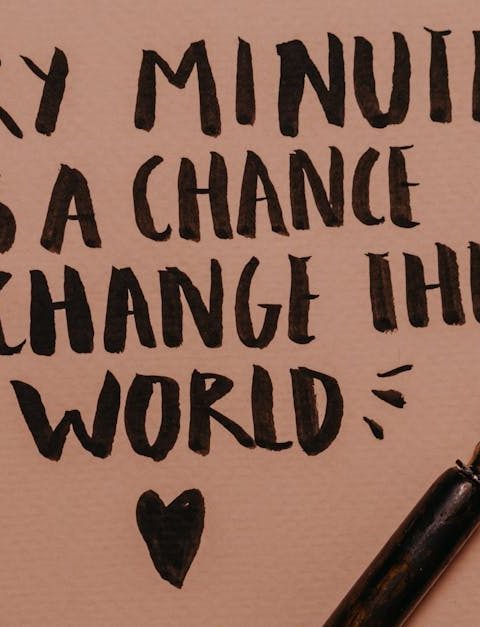 RY MINUT
S A CHANCE
CHANGE THE
WORLD